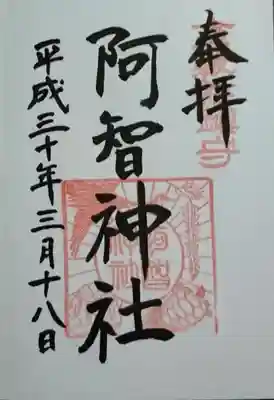 奉拝
阿智神社
平成三十年三月十八日